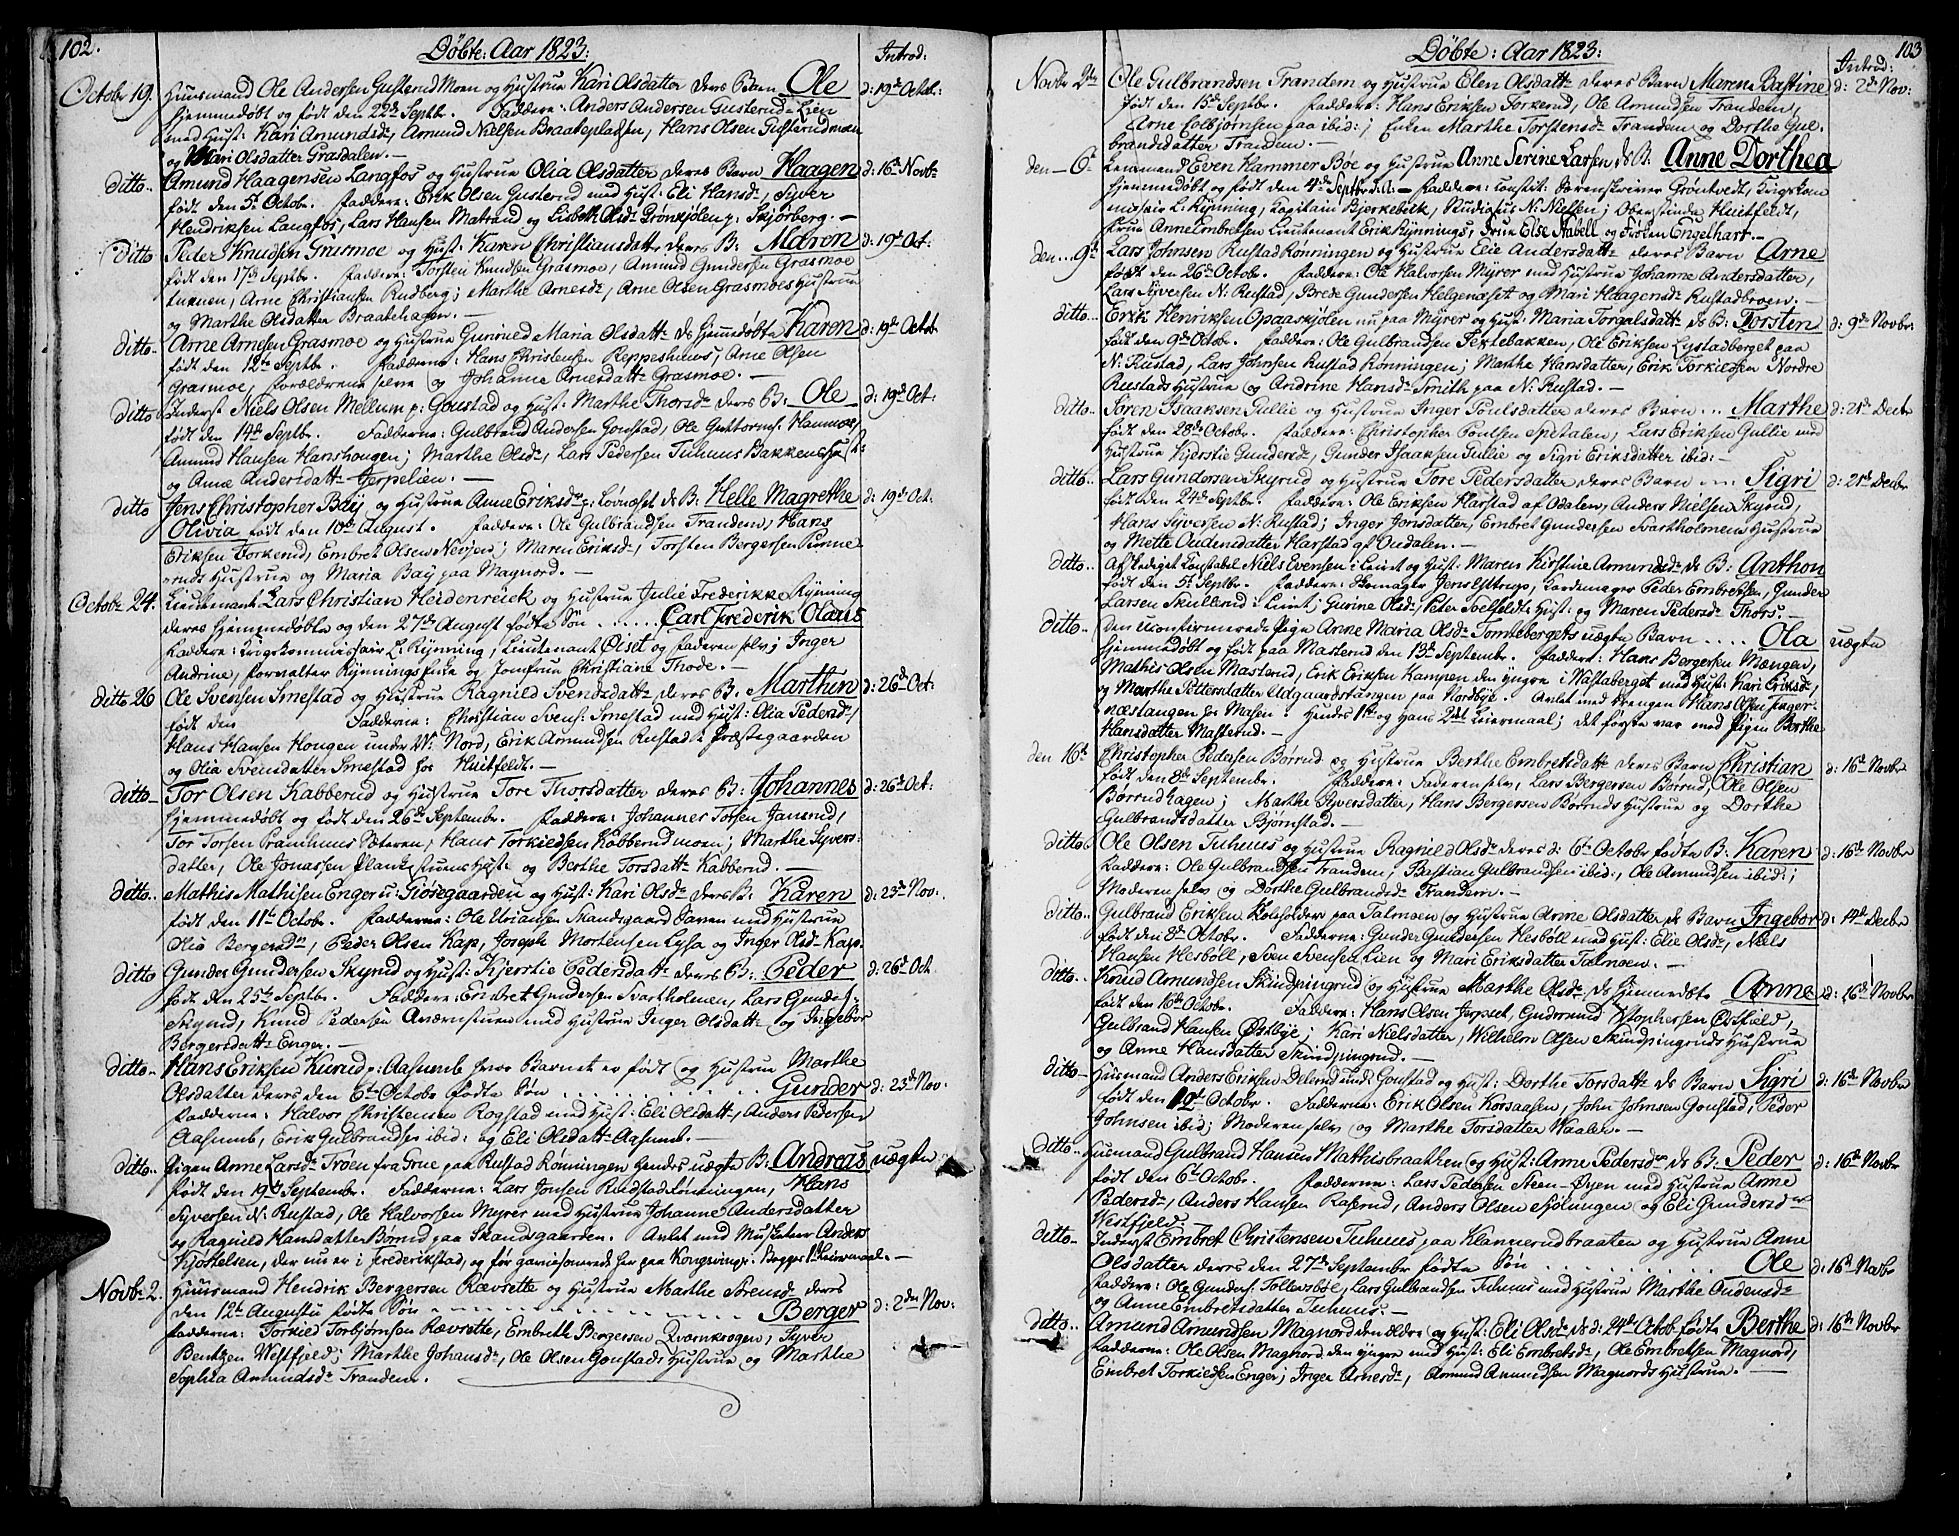 102.
Döbte: Aar 1823:
Introd:
October 19. Huusmand Ole Andersen Gusterud Moen og Hustrue Kari Olsdatter deres Barn Ole d: 19de Octob:
hjemmedøbt og født den 22de Septbr. Faddere: Anders Andersen Gusterud Lien
med Hust: Kari Amundsdr, Amund Nielsen Braatepladsen, Hans Olsen Gusterudmoen
og Mari Olsdatter Grasdalen. —
Ditto.. Amund Haagensen Langfos og Hustrue Olia Olsdatter deres Barn Haagen d: 16de Novbr
født den 5te Octobr. Faddere: Erik Olsen Gusterud med Hust: Eli Hansdr Syver
Hendriksen Langfos, Lars Hansen Matrand og Lisbeth Olsdr Grönkjölen p: Skjörberg. —
Ditto Peder Knudsen Grasmoe og Hust: Karen Christiansdattr deres B: Maren d: 19de Oct:
født den 17de Septbr. Faddere: Torsten Knudsen Grasmoe, Amund Gundersen Grasmoe
Arne Christiansen Rudberg; Marthe Arnesdr, Arne Olsen Grasmoes Hustrue
og Marthe Olsdatter Braatehagen. —
Ditto Arne Arnesen Grasmoe og Hustrue Gunnild Maria Olsdattr Ds hjemdøbte Karen d: 19de Octob
født den 12te Septbr. Fadderne: Hans Christensen Reppeshuus, Arne Olsen
Grasmoe, Forældrene selve og Johanne Arnesdattr Grasmoe. —
Ditto Inderst Niels Olsen Mellum p: Goustad og Hust: Marthe Thorsdr deres B: Ole d: 19de Oct:
født den 14de Septbr. Fadderne: Gulbrand Andersen Goustad, Ole Guttorms: Hanmoe,
Amund Hansen Hanshougen; Marthe Olsdr, Lars Pedersen Tuhuus Bakkens Hust:
og Anne Andersdattr Jerpelien. —
Ditto Jens Christopher Baÿ og Hustrue Anne Eriksdr p: Lövnæset ds B: Helle Magrethe d: 19de Oct:
Olivia født den 10de August. Faddere: Ole Gulbrandsen Trandem, Hans
Eriksen Torkerud, Embret Olsen Nevjen; Maren Eriksdr, Torsten Bergersen Punne-
ruds Hustrue og Maria Baÿ paa Magnord. —
Octobr 24. Lieutenant Lars Christian Heidenreick og Hustrue Julie Frederikke Rÿnning
deres hjemmedøbte og den 27de August fødte Sön ...... Carl Frederik Olaus
Faddere: Krigskommissair L: Rÿnning, Lieutenant Oiset og Faderen selv; Inger
Andrine, Forvalter Rÿnnings Frue og Jomfrue Christiane Thode. —
Ditto 26 Ole Svensen Smestad og Hustrue Ragnild Svensdattr deres B: Marthin d: 26de Oct:
født den Fadderne: Christian Svens: Smestad med Hust: Olia Pedersdr,
Hans Hansen Hougen under N: Nord, Erik Amundsen Rustad i Præstegaarden
og Olia Svensdatter Smestad hos Huitfeldt. —
Ditto — Tor Olsen Kabberud og Hustrue Tore Thorsdatter deres B: Johannes d: 26de Oct:
hjemmedøbt og født den 26de Septembr. Faddere: Johannes Torsen Jansrud,
Tor Torsen Pramhuus Sæteren, Hans Torkildsen Kabberudmoen; Marthe Syvers-
datter, Ole Jonassen Plankestuens Hust: og Berthe Torsdattr Kabberud. —
Ditto.. Mathis Mathisen Enger u: Giöregaarden og Hust: Kari Olsdr deres B: Karen d: 23de Nov:
født den 11te Octobr. Fadderne: Ole Uriansen Skandsgaard Haven med Hustrue
Olia Bergersdr, Peder Olsen Kap, Joseph Mortensen Lysa og Inger Olsdr Kap.
Ditto Gunder Gundersen Skyrud og Hust: Kjerstie Pedersdattr deres B: Peder d: 26de Oct.
født den 25te Septbr. Faddere: Embret Gundersen Svartholmen, Lars Gunders:
Skyrud, Knud Pedersen Qværnstuen med Hustrue Inger Olsdattr og Ingebor
Bergersdattr Enger. —
Ditto.. Hans Eriksen Kurud p: Aasumb hvor Barnet er født og Hustrue Marthe
Olsdatter deres den 6te Octobr fødte Sön . . . . . . Gunder d: 23de Nov:
Fadderne: Halvor Christensen Rogstad med Hust: Eli Olsdattr, Anders Pedersen
Aasumb, Erik Gulbrandsen ibid: og Eli Olsdattr Aasumb. —
Ditto.. Pigen Anne Larsdr Tröen fra Grue paa Rustad Rönningen hendes uægte B: Andreas uægte
født den 19de Septembr. Fadderne: Lars Jonsen Rudstadrönningen, Hans
Syversen N: Rustad, Ole Halvorsen Myrer med Hustrue Johanne Andersdatter
og Ragnild Hansdatter Börrud paa Skandsgaarden. Avlet med Musketeer Anders
Kjöstelsen, der nu er i Frederikstad, og før garnisonerede her paa Kongsvinger. Begges 1te Leiermaal. —
Novbr 2. Huusmand Hendrik Bergersen Rævsette og Hustrue Marthe Svensdr deres
den 12te Augusti fødte Sön . . . . . . Berger d: 2den Nov:
Fadderne: Torkild Torbjörnsen Rævsette, Embreth Bergersen Qværnkrogen, Syver
Bentzen Vestfjeld; Marthe Johansdr, Ole Olsen Goustads Hustrue og Marthe
Sophia Amundsdr Trandem.
103
Döbte: Aar 1823:
Introd:
Novbr 2den Ole Gulbrandsen Trandem og Hustrue Elen Olsdattr deres Barn Maren Bastine d: 2de Nov:
født den 15de Septbr. Faddere: Hans Eriksen Torkerud, Ole Amundsen Trandem,
Arne Colbjörnsen paa ibid:; Enken Marthe Torstensdr Trandem og Dorthe Gul-
brandsdatter Trandem. —
den — 6te Lensmand Even Hammer Böe og Hustrue Anne Serine Larsen ds B: Anne Dorthea
hjemmedøbt og født den 4de Septbr d.A. — Faddere: Constit: Sorenskriver Gröntvedt, Krigskom-
missair L: Rÿnning, Kapitain Bjerkebek, Studiosus N: Nielsen; Oberstinde Huitfeldt,
Frue Anne Embretsen Lieutenant Erik Rÿnnings, Frue Else Stabell og Frøken Engelhart. —
den ... 9de Lars Johnsen Rustad Rönningen og Hustrue Elie Andersdattr deres Barn Arne
født den 26de Octobr. Faddere: Ole Halvorsen Myrer med Hustrue Johanne Andersdatter,
Lars Syversen N: Rustad, Brede Gundersen Helgenæset og Mari Haagensdr Rustadbroen. —
Ditto.. Erik Henriksen Opaaskjölen nu paa Myrer og Hust: Maria Torgalsdattr ds B: Torsten d: 9de Novbr:
født den 9de Octobr. Faddere: Ole Gulbrandsen Sextebakken, Ole Eriksen Lystadberget paa
N: Rustad, Lars Johnsen Rustad Rönningen; Marthe Hansdatter, Erik Torkildsen Nordre
Rustads Hustrue og Andrine Hansdr Smith paa N: Rustad. —
Ditto.. Sören Isaaksen Gullie og Hustrue Inger Poulsdatter deres Barn ... Marthe d: 21de Decbr
født den 28de Octobr. Faddere: Christopher Poulsen Spetalen, Lars Eriksen Gullie med
Hustrue Kjerstie Gundersdr, Gunder Isaaksen Gullie og Sigri Eriksdatter ibid: —
Ditto.. Lars Gundersen Skyrud og Hustrue Tore Pedersdatter deres Barn ... Sigri d: 21de Decbr
født den 24de Septbr. Faddere: Ole Eriksen Harstad af Odalen, Anders Nielsen Skyrud,
Hans Syversen N: Rustad; Inger Jonsdatter, Embret Gundersen Svartholmens Hustrue
og Mette Oudensdatter Harstad af Oudalen. —
Ditto.. Afskediget Constabel Niels Evensen i Leiret og Hust: Maren Kirstine Amundsdr ds B: Anthon
født den 5te Septbr. Faddere: Skomager Jens Estrup, Kardemager Peder Embretsen, Gunder
Larsen Skullerud i Leiret; Gurine Olsdr, Peter Soelfeldts Hust: og Maren Pedersdr Thors. —
Ditto.. Den Uconfirmerede Pige Anne Maria Olsdr Tomtebergets uægte Barn .... Ola uægte
hjemmedøbt og født paa Masterud den 13de Septembr. Faddere: Hans Bergersen Mængen,
Mathis Olsen Masterud, Erik Eriksen Kampen den yngre i Nastaberget med Hust: Kari Eriksdr,
og Marthe Pettersdatter Udgaardstangen paa Nordbye. Avlet med Drengen Hans Olsen Tager-
næstangen hos Masen: Hendes 1te og Hans 2det Leiermaal; det første var med Pigen Borthe
Hansdatter Masterud. —
den 16de Christopher Pedersen Börrud og Hustrue Berthe Embretsdattr deres Barn Christian d: 16de Novbr
født den 8de Septembr. Faddere: Faderen selv, Lars Bergersen Börrud, Ole Olsen
Börrudhagen; Marthe Syversdatter, Hans Bergersen Börruds Hustrue og Dorthe
Gulbrandsdatter Björnstad. —
Ditto.. Ole Olsen Tuhuus og Hustrue Ragnild Olsdr deres d: 6te Octobr fødte B: Karen d: 16de Novbr
Faddere: Ole Gulbrandsen Trandem, Bastian Gulbrandsen ibid:, Ole Amundsen ibid:;
Moderen selv og Dorthe Gulbrandsdr Trandem. —
Ditto.. Gulbrand Eriksen Holsholder paa Talmoen og Hustrue Anne Olsdatter ds Barn Ingebor d: 14de Decbr
født den 8de Octobr. Fadderne: Gunder Gundersen Hesböll med Hust: Elie Olsdr, Niels
Hansen Hesböll, Sven Svensen Lien og Mari Eriksdatter Talmoen. —
Ditto.. Knud Amundsen Skindpingrud og Hustrue Marthe Olsdr ds hjemmedøte Anne d: 16de Novbr
født den 16de Octobr. Faddere: Hans Olsen Jerpset, Gudmund Christophersen Östfjeld,
Gulbrand Hansen Östbye; Kari Nielsdatter, Wilhelm Olsen Skindpingruds Hustrue
og Anne Hansdatter Skindpingrud. —
Ditto — Huusmand Anders Eriksen Delerud und: Goustad og Hust: Dorthe Torsdattr ds Barn Sigri d: 16de Novbr
født den 12te Octobr. Fadderne: Erik Olsen Korsaasen, John Johnsen Goustad, Peder
Johnsen ibid; Moderen selv og Marthe Torsdatter Waaler. —
Ditto.. Husmand Gulbrand Hansen Mathisbraathen og Hust: Anne Pedersdr ds B: Peder d: 16de Novbr
født den 6te Octobr. Faddere: Lars Pedersen Steen-Öyen med Hustrue Anne
Pedersdr, Anders Hansen Rasterud, Anders Olsen Sjölungen og Eli Gundersdr
Westfjeld. —
Ditto — Inderst Embret Christensen Tuhuus paa Klannerudbraaten og Hustrue Anne
Olsdatter deres den 27de Septembr fødte Sön . . . . . . Ole d: 16de Novbr
Faddere: Ole Gunders: Tollersböl, Lars Gulbrandsen Tuhuus med Hustrue Marthe Oudensdr
og Anne Embretsdatter Tuhuus. —
Ditto.. Amund Amundsen Magnord den ældre og Hust: Eli Olsdr ds d: 24de Octobr fødte Berthe d: 16de Novbr
Faddere: Ole Olsen Magnord den yngre med Hust: Eli Embretsdr, Ole Embretsen Magnord,
Embret Torkildsen Enger; Inger Arnesdr, Amund Amundsen Magnords Hustrue. —